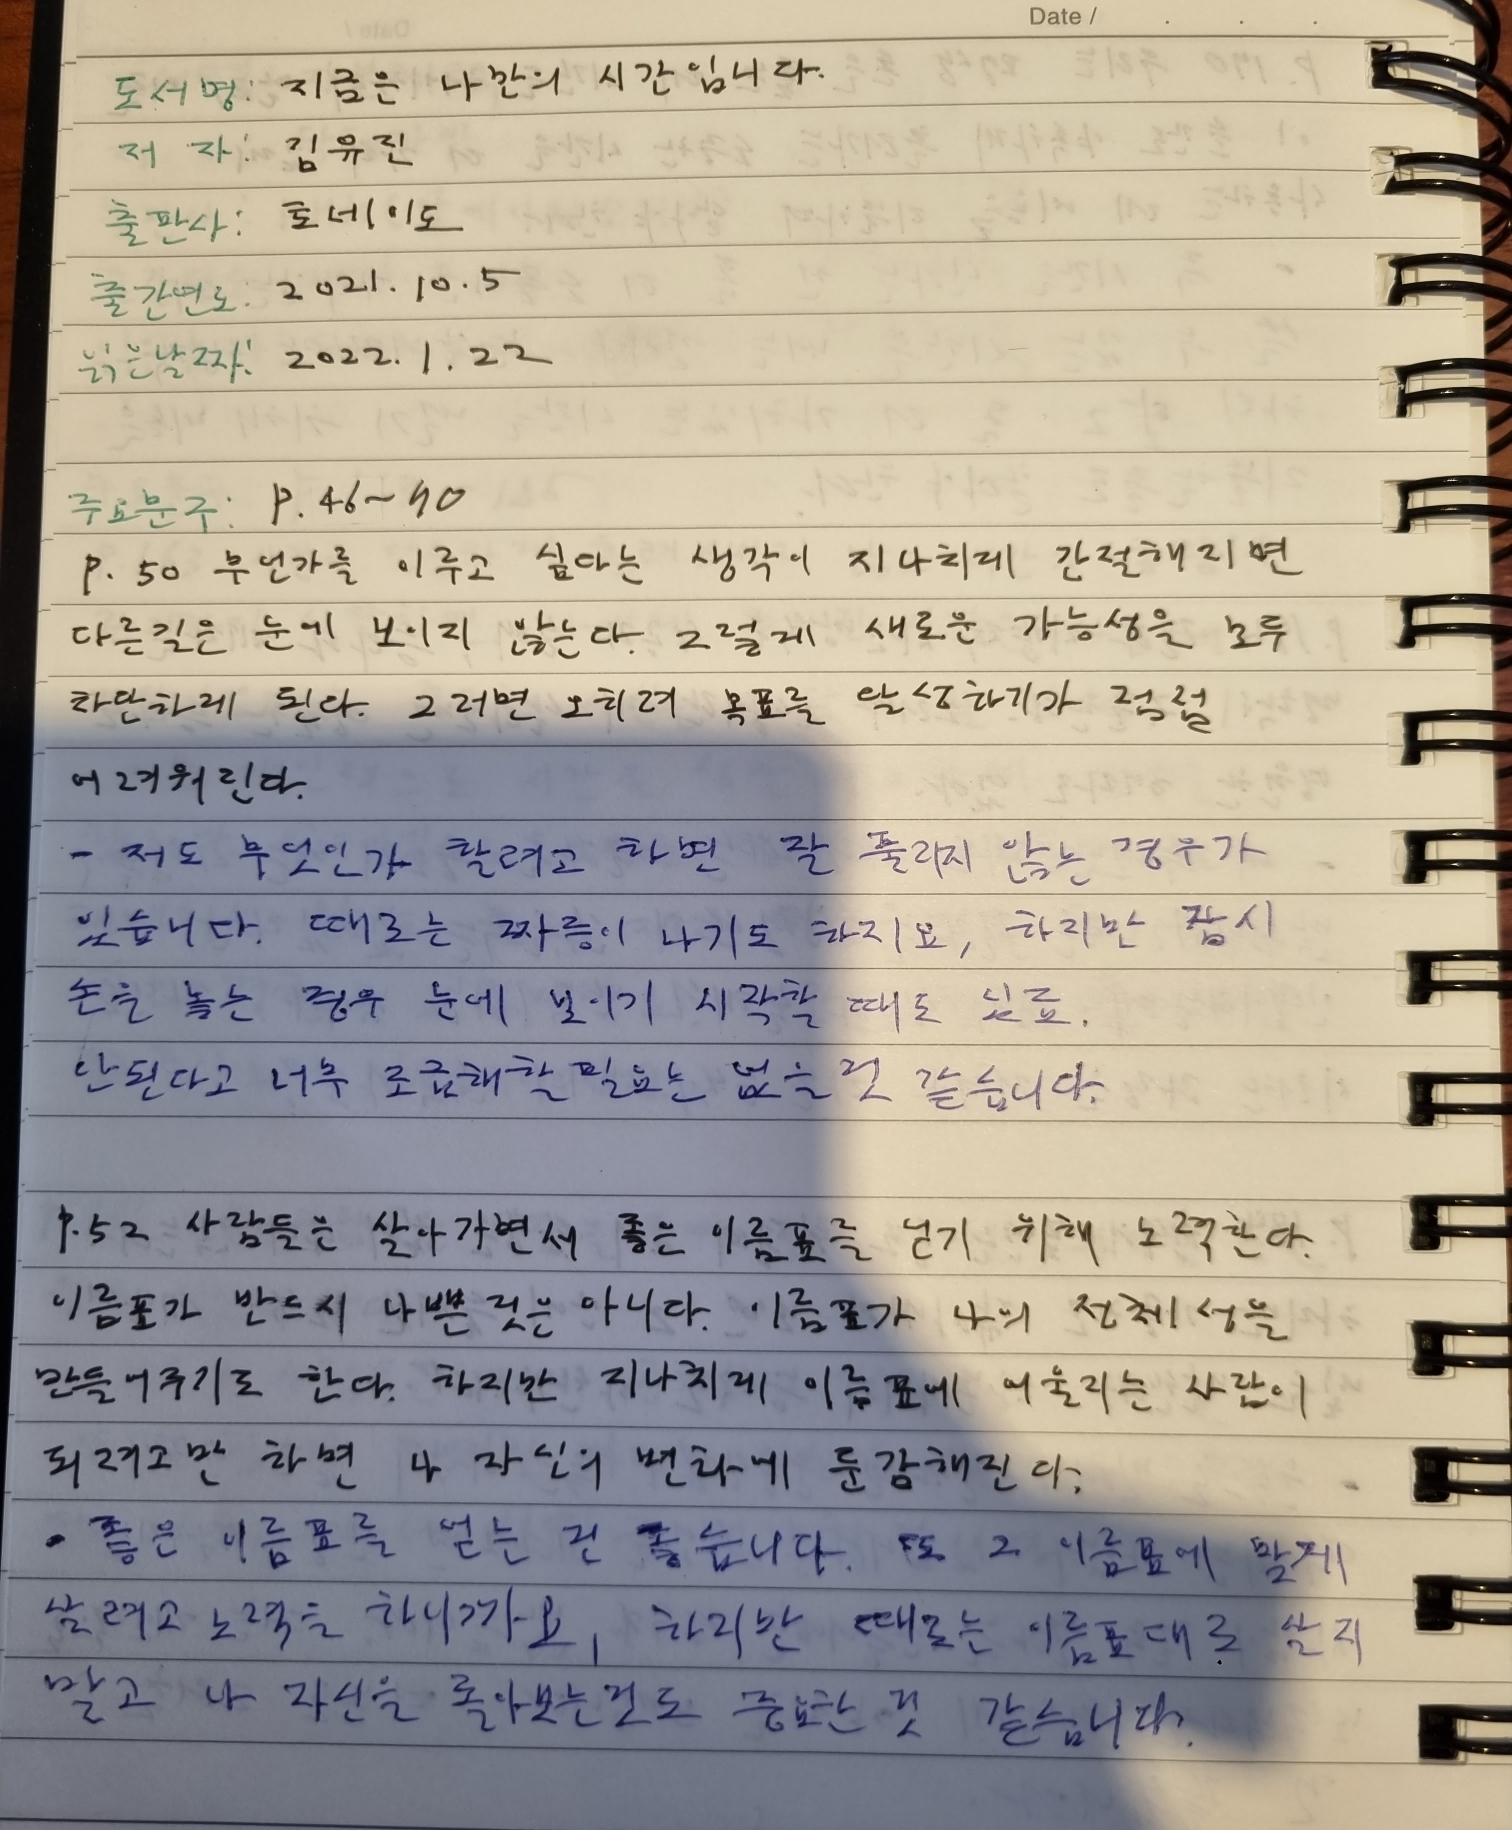 Date /
도서명: 지금은 나만의 시간입니다.
저 자: 김유진
출판사: 토네이도
출간연도: 2021. 10. 5
읽은날짜: 2022. 1. 22
주요문구: P. 46~90
P. 50 무언가를 이루고 싶다는 생각이 지나치게 간절해지면
다른길은 눈에 보이지 않는다. 그렇게 새로운 가능성을 모두
차단하게 된다. 그러면 오히려 목표를 달성하기가 점점
어려워진다.
- 저도 무엇인가 할려고 하면 잘 풀리지 않는 경우가
있습니다. 때로는 짜증이 나기도 하지요, 하지만 잠시
손을 놓는 경우 눈에 보이기 시작할 때도 있죠.
안된다고 너무 조급해할 필요는 없을 것 같습니다.
P. 52 사람들은 살아가면서 좋은 이름표를 얻기 위해 노력한다.
이름표가 반드시 나쁜 것은 아니다. 이름표가 나의 정체성을
만들어주기도 한다. 하지만 지나치게 이름표에 어울리는 사람이
되려고만 하면 나 자신의 변화에 둔감해진다.
• 좋은 이름표를 얻는 건 좋습니다. 또 그 이름표에 맞게
살려고 노력을 하니까요, 하지만 때로는 이름표대로 살지
말고 나 자신을 돌아보는것도 중요한 것 같습니다.